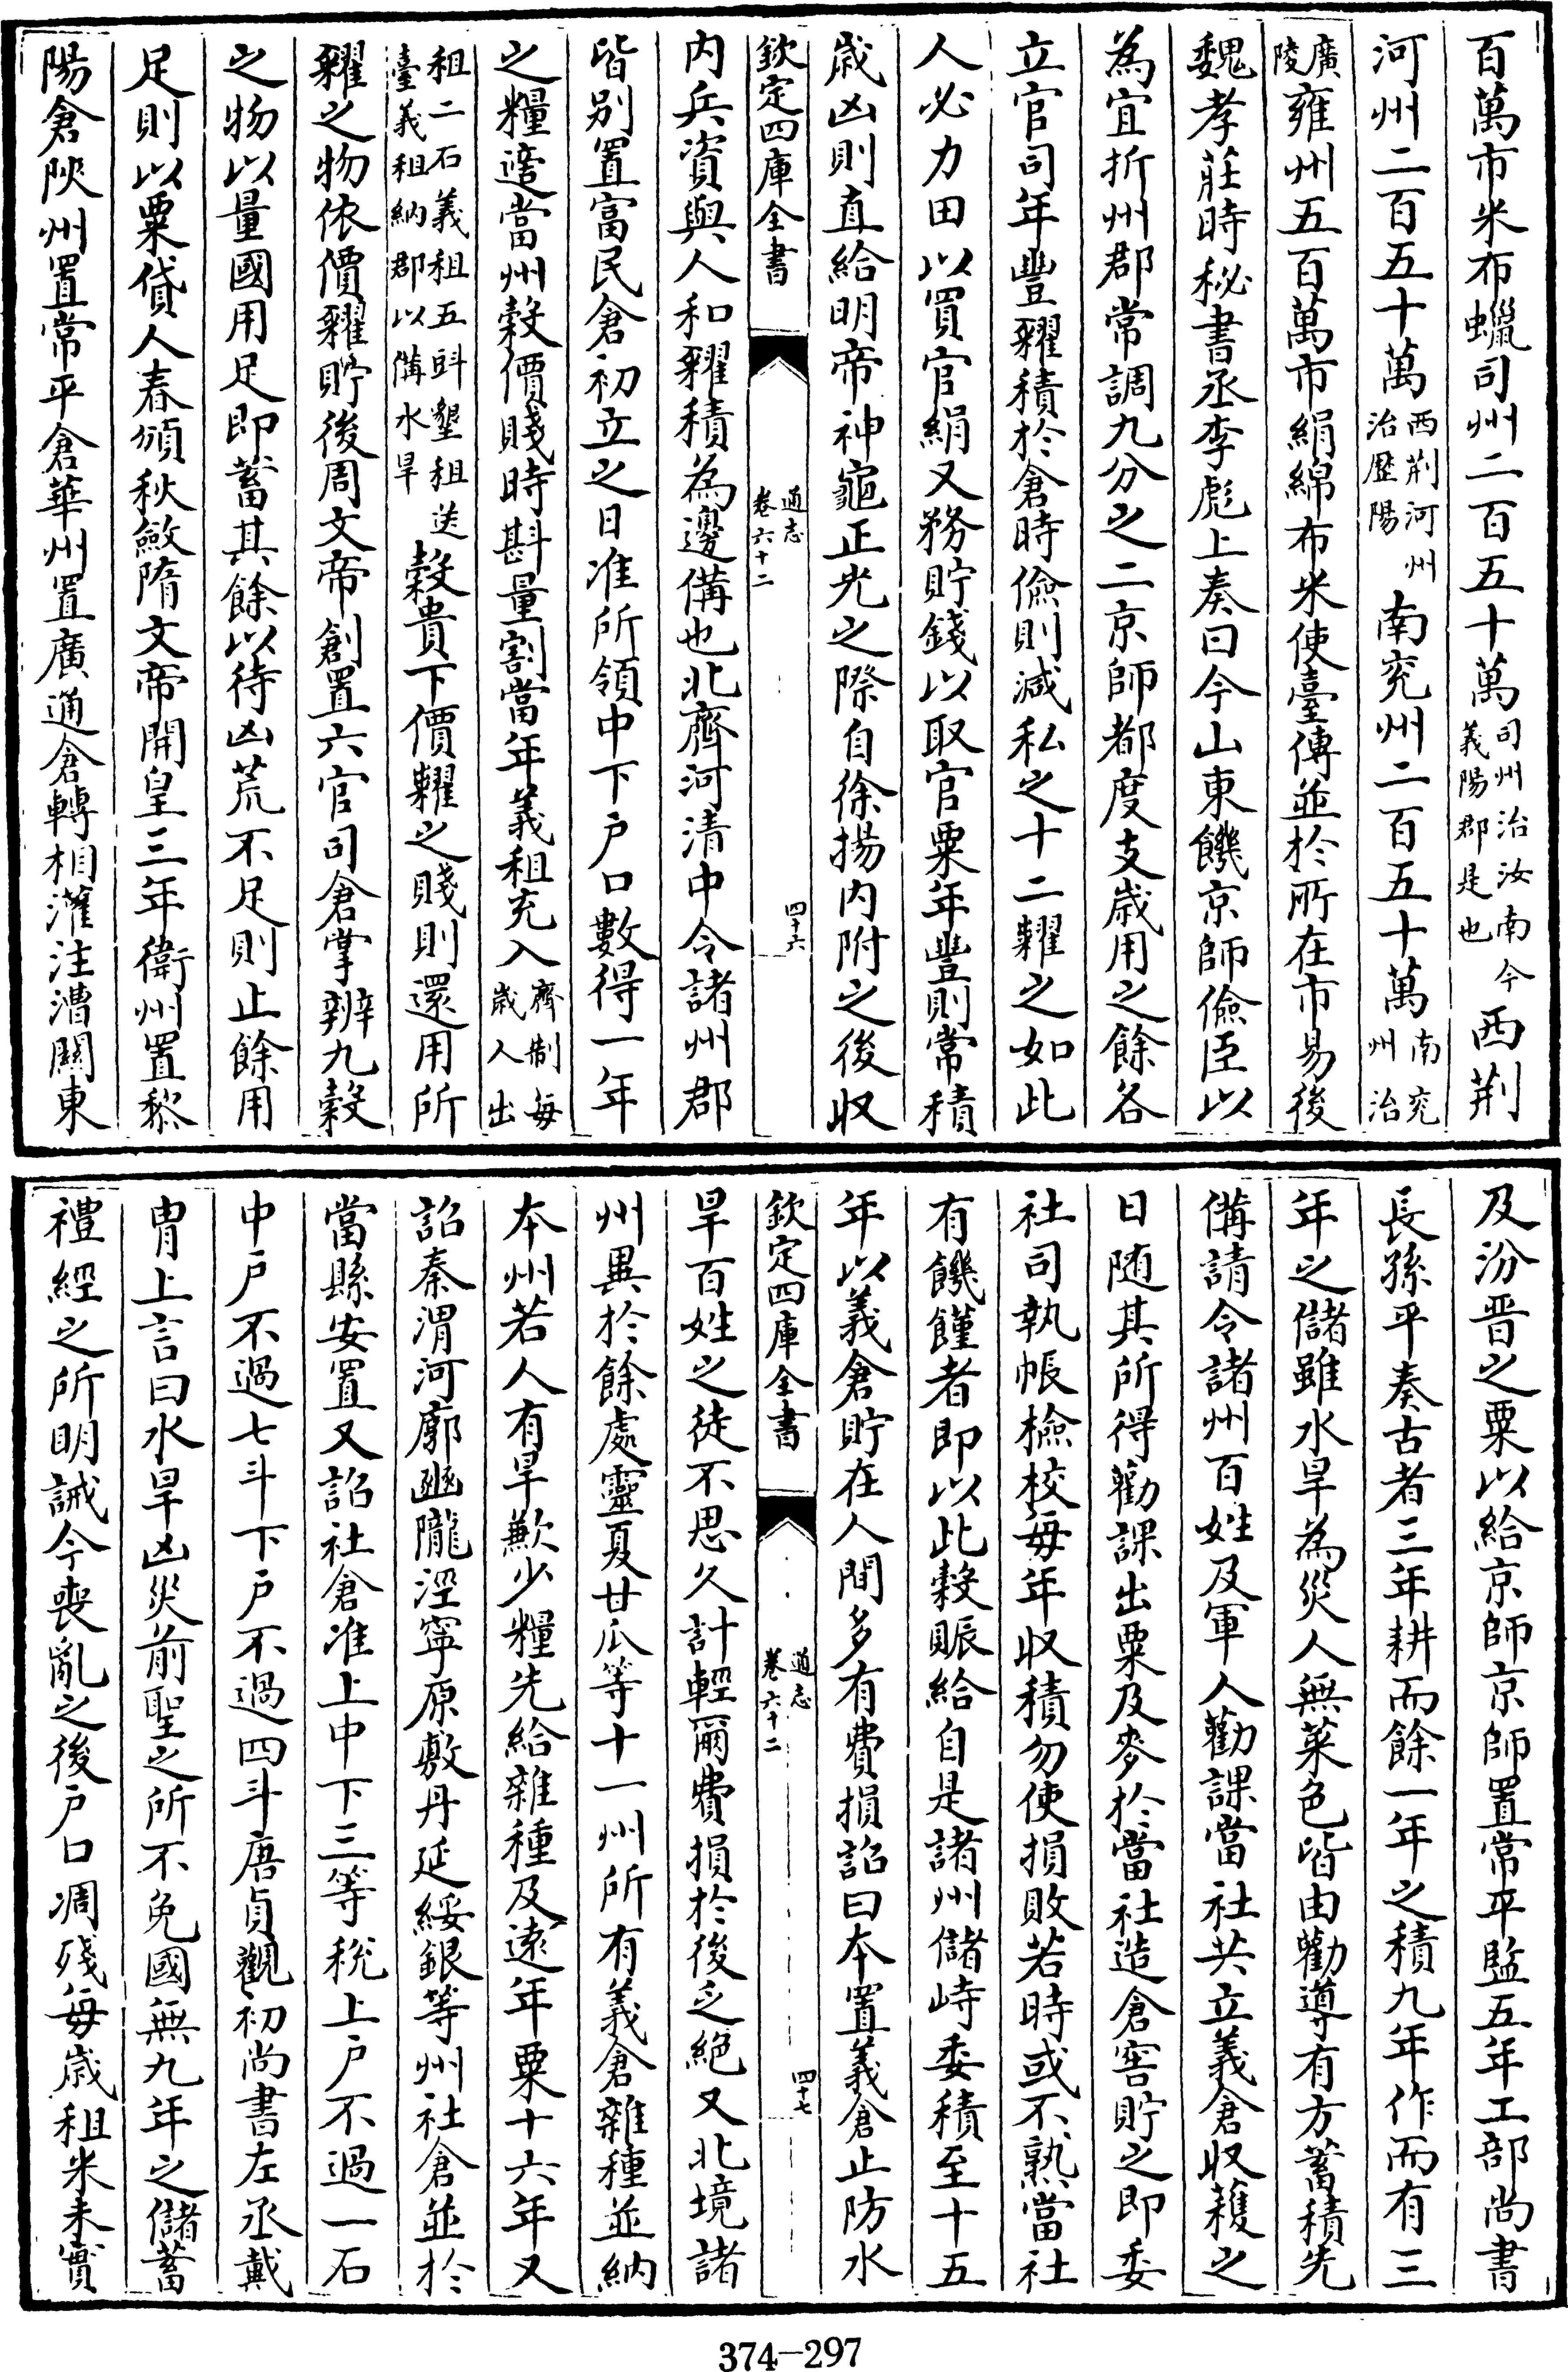 百萬市米布蠟司州二百五十萬司州治汝南今義陽郡是也西荆
河州二百五十萬西荆河州治歷陽南兖州二百五十萬南兖州治
廣陵雍州五百萬市絹綿布米使臺傳並於所在市易後
魏孝莊時秘書丞李彪上奏曰今山東饑京師儉臣以
為宜折州郡常調九分之二京師都度支歲用之餘各
立官司年豐糴積於倉時儉則減私之十二糶之如此
人必力田以買官絹又務貯錢以取官粟年豐則常積
歲凶則直給明帝神龜正光之際自徐揚内附之後收
欽定四庫全書 通志卷六十二 四十六
内兵資與人和糴積為邊備也北齊河清中令諸州郡
皆别置富民倉初立之日准所領中下户口數得一年
之糧逐當州穀價賤時斟量割當年義租充入齊制每歲人出
租二石義租五㪷墾租送臺義租納郡以備水旱穀貴下價糶之賤則還用所
糴之物依價糴貯後周文帝創置六官司倉掌辨九穀
之物以量國用足即蓄其餘以待凶荒不足則止餘用
足則以粟貸人春頒秋斂隋文帝開皇三年衛州置黎
陽倉陜州置常平倉華州置廣通倉轉相灌注漕關東
及汾晋之粟以給京師京師置常平監五年工部尚書
長孫平奏古者三年耕而餘一年之積九年作而有三
年之儲雖水旱為災人無菜色皆由勸導有方蓄積先
備請令諸州百姓及軍人勸課當社共立義倉收穫之
日随其所得勸課出粟及麥於當社造倉窖貯之即委
社司執帳檢校每年收積勿使損敗若時或不熟當社
有饑饉者即以此穀賑給自是諸州儲峙委積至十五
年以義倉貯在人間多有費損詔曰本置義倉止防水
欽定四庫全書 通志卷六十二 四十七
旱百姓之徒不思久計輕爾費損於後乏絶又北境諸
州異於餘處靈夏甘瓜等十一州所有義倉雜種並納
本州若人有旱歉少糧先給雜種及遠年粟十六年又
詔秦渭河廓豳隴涇寧原敷丹延綏銀等州社倉並於
當縣安置又詔社倉准上中下三等稅上户不過一石
中户不過七斗下户不過四斗唐貞觀初尚書左丞戴
胄上言曰水旱凶災前聖之所不免國無九年之儲蓄
禮經之所明誡今喪亂之後户口凋殘每歲租米未實
374-297